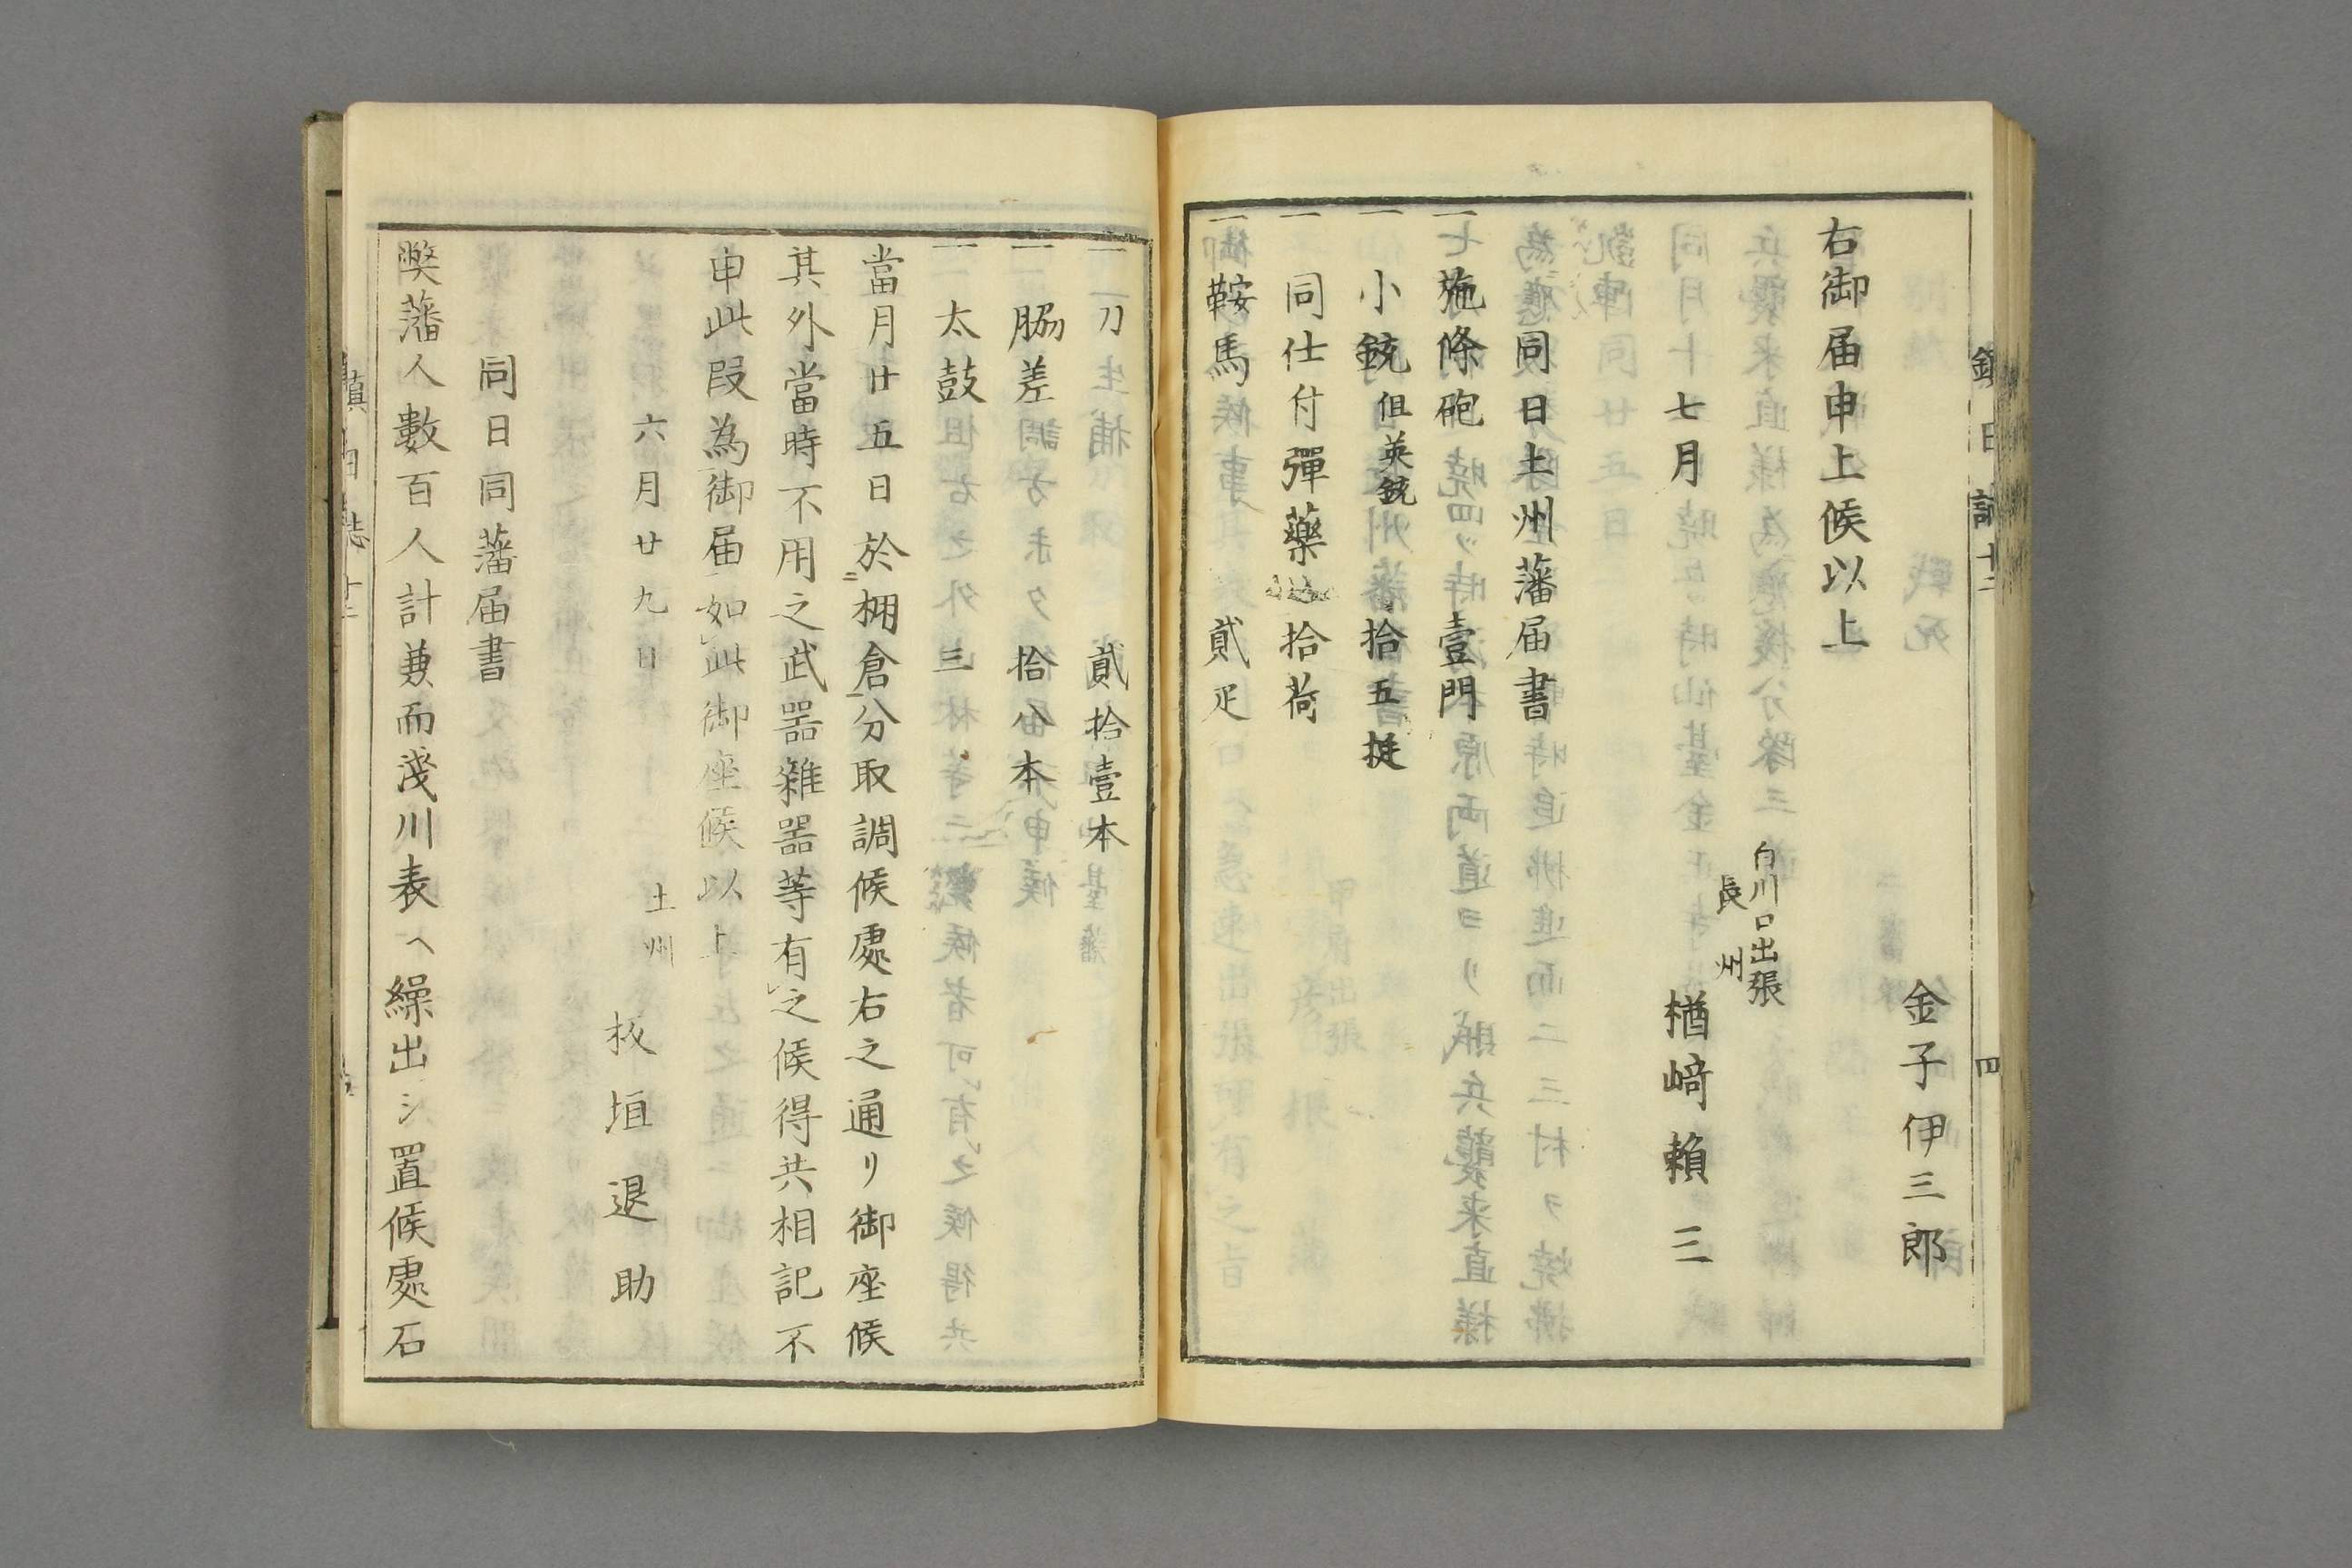 金子伊三郎
右御届申上候以上
白川口出張
長州
七月
楢﨑賴三
同日土州藩届書
一施條砲 壹門
一小銃 但英銃 拾五挺
一同仕付彈藥 拾荷
一鞍馬 貳疋
一刀 貳拾壹本
一脇差 拾八本
一太鼓 三
當月廿五日於棚倉分取調候處右之通リ御座候
其外當時不用之武器雜器等有之候得共相記不
申此段為御届如此御座候以上
六月廿九日
土州
板垣退助
同日同藩届書
弊藩人數百人計兼而淺川表ヘ繰出シ置候處石